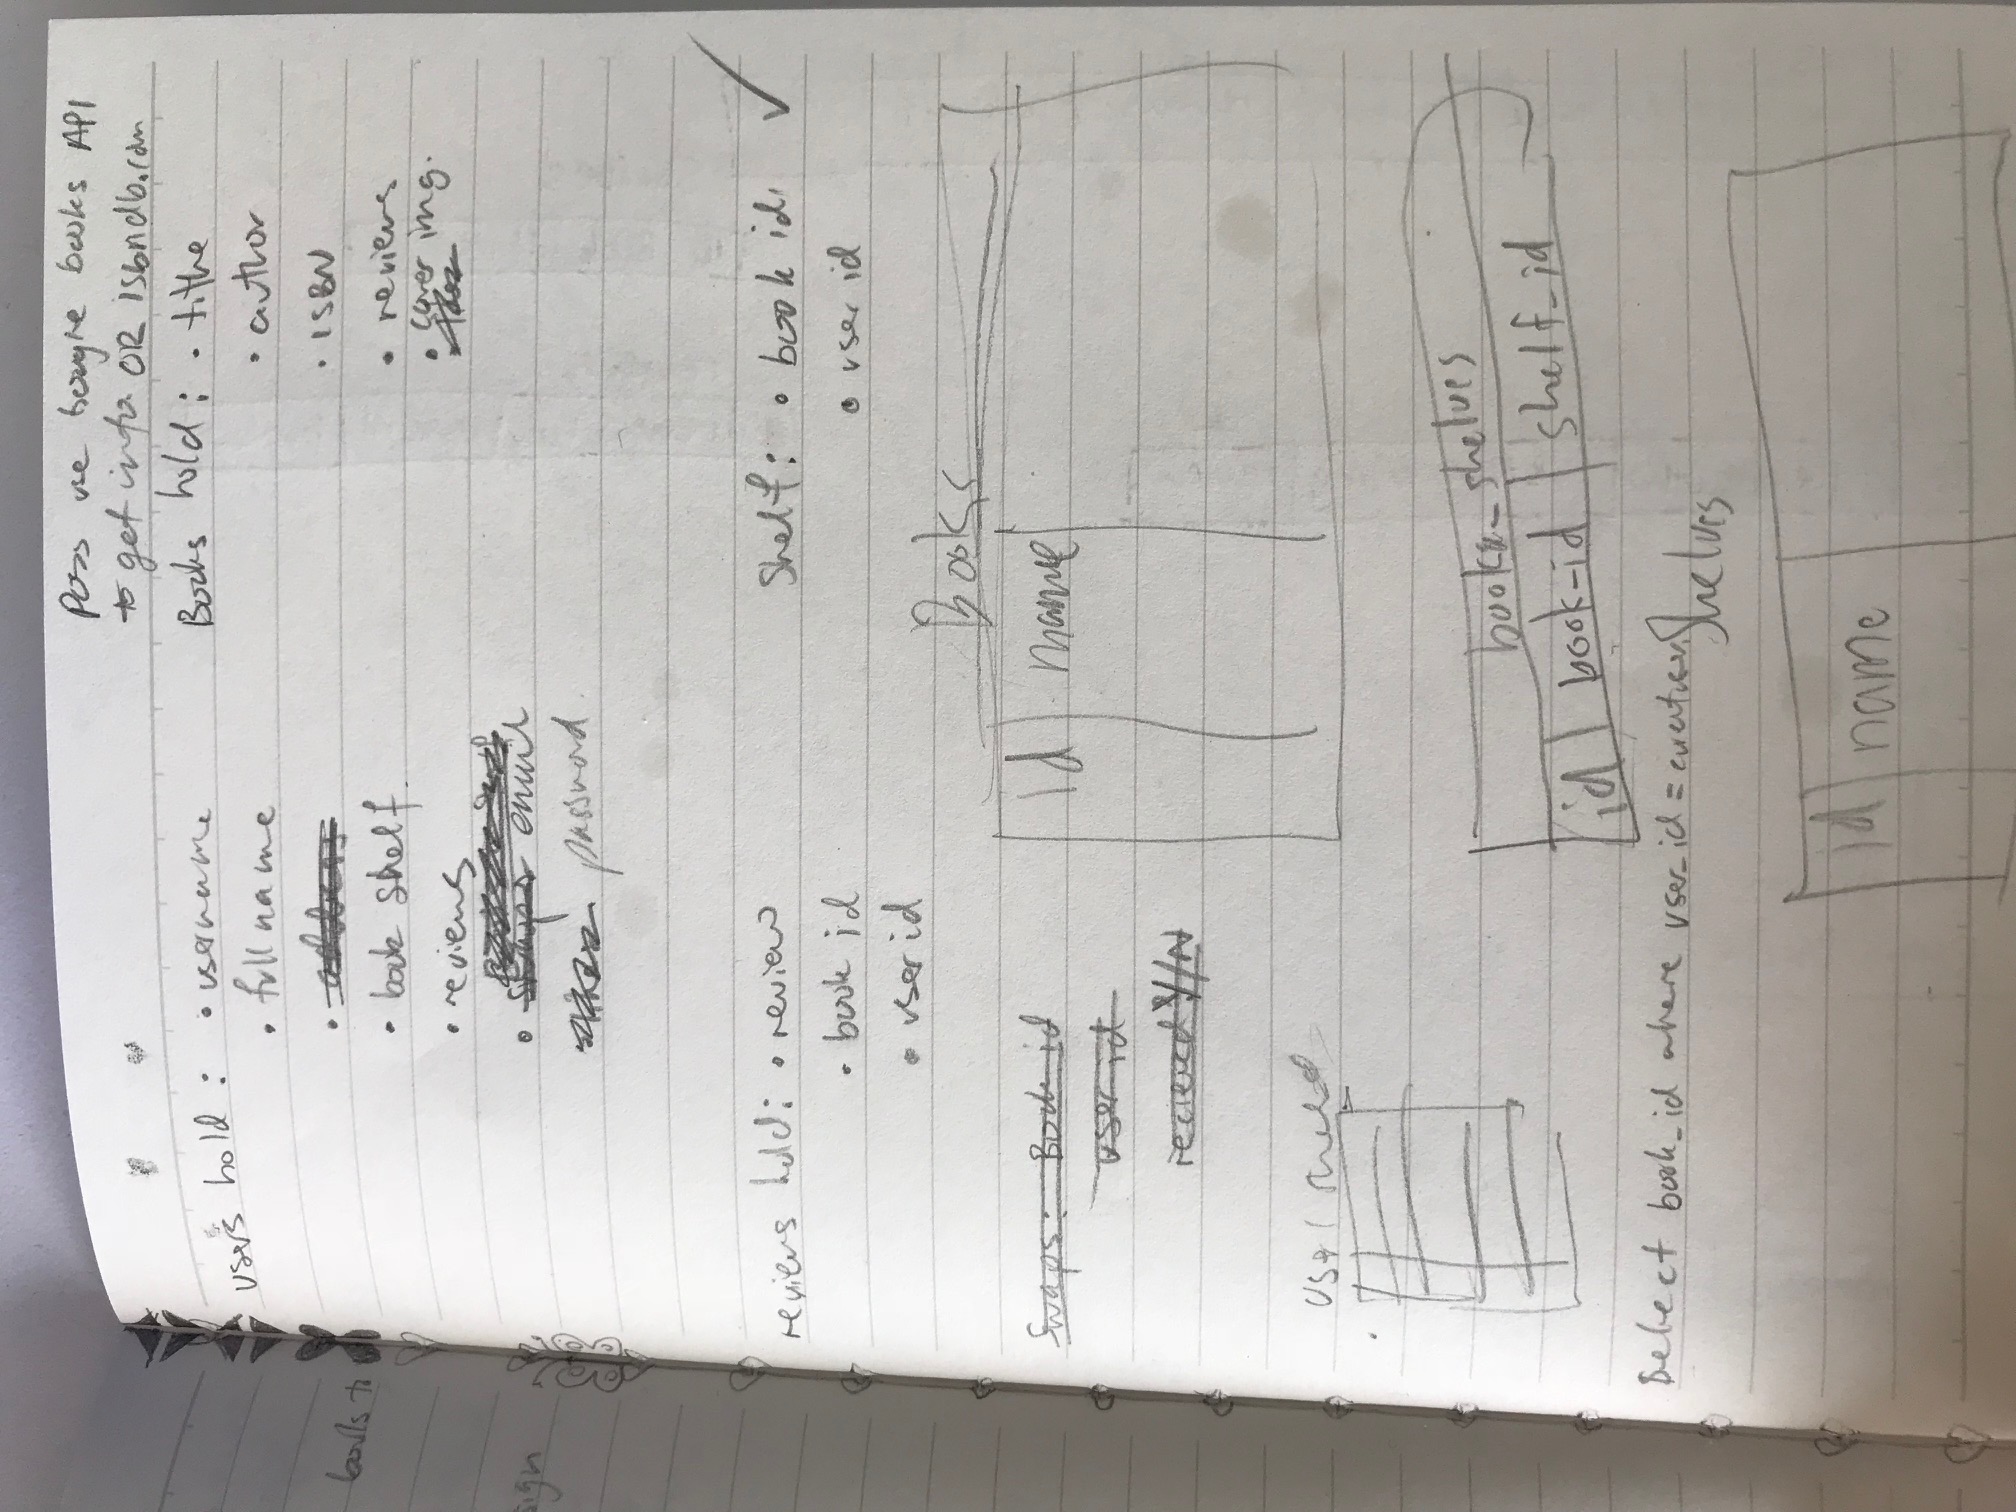 Poss use google books API
to get info OR isbndb.com
users hold : • username
• full name
• address
• book shelf.
• reviews
• swaps email
password.
Books hold : • title
• author
• ISBN
• reviews
• cover img.
books to
sign
reviews hold: • review
• book id
• user id
Shelf: • book id. ✓
• user id
Swaps: Book id
user id
recieved Y/N
Books
id name
user shelf
book_shelves
id book_id shelf_id
Select book_id where user_id = currentuser
Shelves
id name